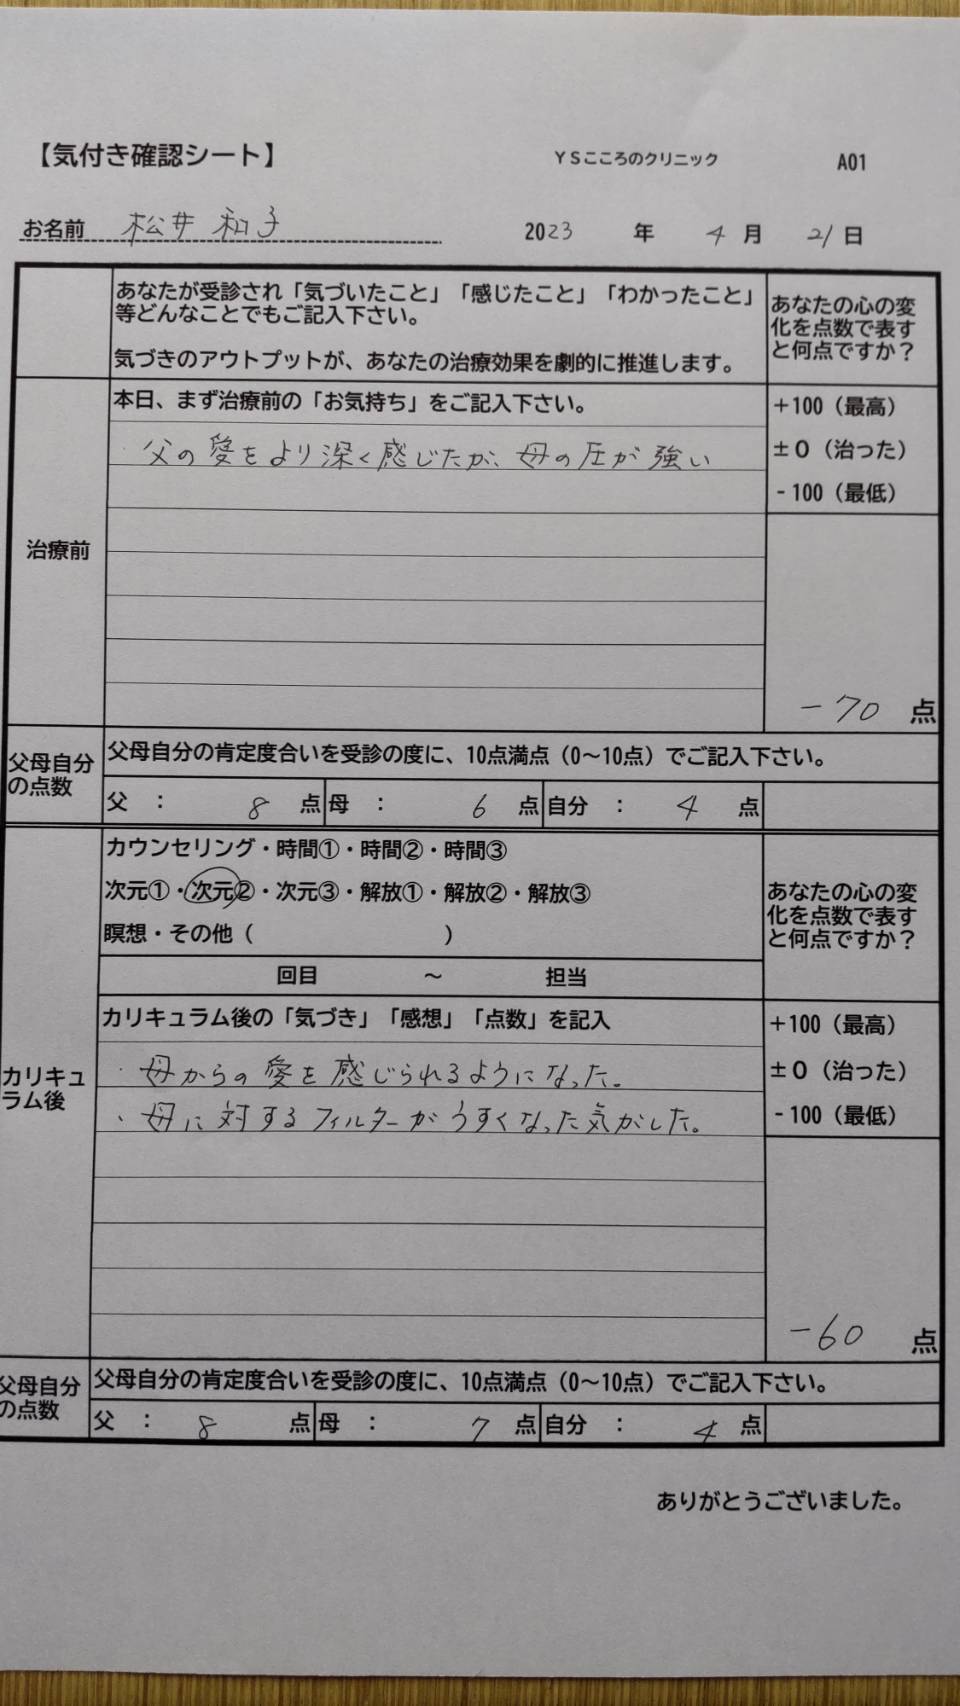 【気付き確認シート】 YSこころのクリニック A01
お名前 松井 和子 2023 年 4 月 21 日
あなたが受診され「気づいたこと」「感じたこと」「わかったこと」
等どんなことでもご記入下さい。
気づきのアウトプットが、あなたの治療効果を劇的に推進します。
あなたの心の変
化を点数で表す
と何点ですか？
治療前
本日、まず治療前の「お気持ち」をご記入下さい。
・父の愛をより深く感じたが、母の圧が強い
+100（最高）
±0（治った）
-100（最低）
-70 点
父母自分
の点数
父母自分の肯定度合いを受診の度に、10点満点（0～10点）でご記入下さい。
父 ： 8 点 母 ： 6 点 自分 ： 4 点
カウンセリング・時間①・時間②・時間③
次元①・次元②・次元③・解放①・解放②・解放③
瞑想・その他（ ）
回目 ～ 担当
あなたの心の変
化を点数で表す
と何点ですか？
カリキュ
ラム後
カリキュラム後の「気づき」「感想」「点数」を記入
・母からの愛を感じられるようになった。
・母に対するフィルターがうすくなった気がした。
+100（最高）
±0（治った）
-100（最低）
-60 点
父母自分
の点数
父母自分の肯定度合いを受診の度に、10点満点（0～10点）でご記入下さい。
父 ： 8 点 母 ： 7 点 自分 ： 4 点
ありがとうございました。